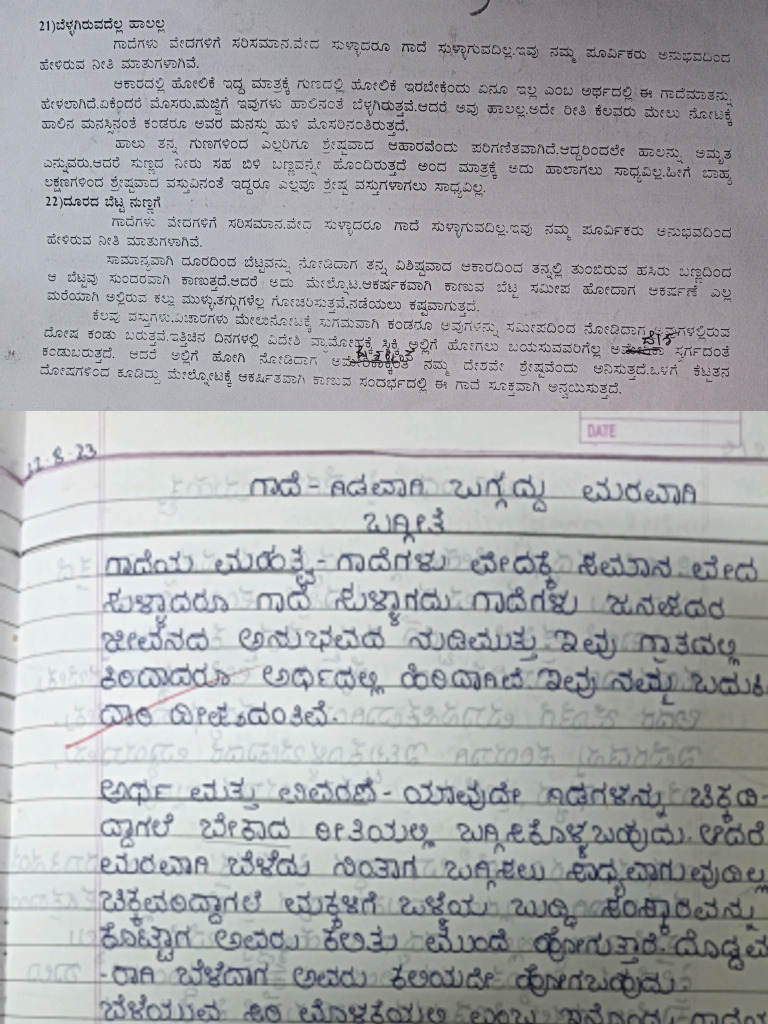 21)ಬೆಳ್ಳಗಿರುವದೆಲ್ಲ ಹಾಲಲ್ಲ
ಗಾದೆಗಳು ವೇದಗಳಿಗೆ ಸರಿಸಮಾನ.ವೇದ ಸುಳ್ಳಾದರೂ ಗಾದೆ ಸುಳ್ಳಾಗುವದಿಲ್ಲ.ಇವು ನಮ್ಮ ಪೂರ್ವಿಕರು ಅನುಭವದಿಂದ
ಹೇಳಿರುವ ನೀತಿ ಮಾತುಗಳಾಗಿವೆ.
ಆಕಾರದಲ್ಲಿ ಹೋಲಿಕೆ ಇದ್ದ ಮಾತ್ರಕ್ಕೆ ಗುಣದಲ್ಲಿ ಹೋಲಿಕೆ ಇರಬೇಕೆಂದು ಏನೂ ಇಲ್ಲ ಎಂಬ ಅರ್ಥದಲ್ಲಿ ಈ ಗಾದೆಮಾತನ್ನು
ಹೇಳಲಾಗಿದೆ.ಏಕೆಂದರೆ ಮೊಸರು.ಮಜ್ಜಿಗೆ ಇವುಗಳು ಹಾಲಿನಂತೆ ಬೆಳ್ಳಗಿರುತ್ತವೆ.ಆದರೆ ಅವು ಹಾಲಲ್ಲ.ಅದೇ ರೀತಿ ಕೆಲವರು ಮೇಲು ನೋಟಕ್ಕೆ
ಹಾಲಿನ ಮನಸ್ಸಿನಂತೆ ಕಂಡರೂ ಅವರ ಮನಸ್ಸು ಹುಳಿ ಮೊಸರಿನಂತಿರುತ್ತದೆ.
ಹಾಲು ತನ್ನ ಗುಣಗಳಿಂದ ಎಲ್ಲರಿಗೂ ಶ್ರೇಷ್ಠವಾದ ಆಹಾರವೆಂದು ಪರಿಗಣಿತವಾಗಿದೆ.ಆದ್ದರಿಂದಲೇ ಹಾಲನ್ನು ಅಮೃತ
ಎನ್ನುವರು.ಆದರೆ ಸುಣ್ಣದ ನೀರು ಸಹ ಬಿಳಿ ಬಣ್ಣವನ್ನೇ ಹೊಂದಿರುತ್ತದೆ ಅಂದ ಮಾತ್ರಕ್ಕೆ ಅದು ಹಾಲಾಗಲು ಸಾಧ್ಯವಿಲ್ಲ.ಹೀಗೆ ಬಾಹ್ಯ
ಲಕ್ಷಣಗಳಿಂದ ಶ್ರೇಷ್ಠವಾದ ವಸ್ತುವಿನಂತೆ ಇದ್ದರೂ ಎಲ್ಲವೂ ಶ್ರೇಷ್ಠ ವಸ್ತುಗಳಾಗಲು ಸಾಧ್ಯವಿಲ್ಲ.
22)ದೂರದ ಬೆಟ್ಟ ನುಣ್ಣಗೆ
ಗಾದೆಗಳು ವೇದಗಳಿಗೆ ಸರಿಸಮಾನ.ವೇದ ಸುಳ್ಳಾದರೂ ಗಾದೆ ಸುಳ್ಳಾಗುವದಿಲ್ಲ.ಇವು ನಮ್ಮ ಪೂರ್ವಿಕರು ಅನುಭವದಿಂದ
ಹೇಳಿರುವ ನೀತಿ ಮಾತುಗಳಾಗಿವೆ.
ಸಾಮಾನ್ಯವಾಗಿ ದೂರದಿಂದ ಬೆಟ್ಟವನ್ನು ನೋಡಿದಾಗ ತನ್ನ ವಿಶಿಷ್ಟವಾದ ಆಕಾರದಿಂದ ತನ್ನಲ್ಲಿ ತುಂಬಿರುವ ಹಸಿರು ಬಣ್ಣದಿಂದ
ಆ ಬೆಟ್ಟವು ಸುಂದರವಾಗಿ ಕಾಣುತ್ತದೆ.ಆದರೆ ಅದು ಮೇಲ್ನೋಟ.ಆಕರ್ಷಕವಾಗಿ ಕಾಣುವ ಬೆಟ್ಟ ಸಮೀಪ ಹೋದಾಗ ಆಕರ್ಷಣೆ ಎಲ್ಲ
ಮರೆಯಾಗಿ ಅಲ್ಲಿರುವ ಕಲ್ಲು ಮುಳ್ಳು,ತಗ್ಗುಗಳೆಲ್ಲ ಗೋಚರಿಸುತ್ತವೆ.ನಡೆಯಲು ಕಷ್ಟವಾಗುತ್ತದೆ.
ಕೆಲವು ವಸ್ತುಗಳು.ವಿಚಾರಗಳು ಮೇಲುನೋಟಕ್ಕೆ ಸುಗಮವಾಗಿ ಕಂಡರೂ ಅವುಗಳನ್ನು ಸಮೀಪದಿಂದ ನೋಡಿದಾಗ ಅವುಗಳಲ್ಲಿರುವ
ದೋಷ ಕಂಡು ಬರುತ್ತವೆ.ಇತ್ತಿಚಿನ ದಿನಗಳಲ್ಲಿ ವಿದೇಶಿ ವ್ಯಾಮೋಹಕ್ಕೆ ಸಿಕ್ಕಿ ಅಲ್ಲಿಗೆ ಹೋಗಲು ಬಯಸುವವರಿಗೆಲ್ಲ ಅಮೇರಿಕಾ ಸ್ವರ್ಗದಂತೆ
ಕಂಡುಬರುತ್ತದೆ. ಆದರೆ ಅಲ್ಲಿಗೆ ಹೋಗಿ ನೋಡಿದಾಗ ಅಮೇರಿಕಾಕ್ಕಿಂತ ನಮ್ಮ ದೇಶವೇ ಶ್ರೇಷ್ಠವೆಂದು ಅನಿಸುತ್ತದೆ.ಒಳಗೆ ಕೆಟ್ಟತನ
ದೋಷಗಳಿಂದ ಕೂಡಿದ್ದು ಮೇಲ್ನೋಟಕ್ಕೆ ಆಕರ್ಷಿತವಾಗಿ ಕಾಣುವ ಸಂದರ್ಭದಲ್ಲಿ ಈ ಗಾದೆ ಸೂಕ್ತವಾಗಿ ಅನ್ವಯಿಸುತ್ತದೆ.
DATE
12.8.23
ಗಾದೆ - ಗಿಡವಾಗಿ ಬಗ್ಗದ್ದು ಮರವಾಗಿ
ಬಗ್ಗೀತೆ
ಗಾದೆಯ ಮಹತ್ವ - ಗಾದೆಗಳು ವೇದಕ್ಕೆ ಸಮಾನ ವೇದ
ಸುಳ್ಳಾದರೂ ಗಾದೆ ಸುಳ್ಳಾಗದು ಗಾದೆಗಳು ಜನಪದರ
ಜೀವನದ ಅನುಭವದ ನುಡಿಮುತ್ತು ಇವು ಗಾತ್ರದಲ್ಲಿ
ಕಿರಿದಾದರೂ ಅರ್ಥದಲ್ಲಿ ಹಿರಿದಾಗಿವೆ ಇವು ನಮ್ಮ ಬದುಕಿ
ದಾರಿ ದೀಪದಂತಿವೆ.
ಅರ್ಥ ಮತ್ತು ವಿವರಣೆ - ಯಾವುದೇ ಗಿಡಗಳನ್ನು ಚಿಕ್ಕದಿ-
ದ್ದಾಗಲೆ ಬೇಕಾದ ರೀತಿಯಲ್ಲಿ ಬಗ್ಗಿಸಿಕೊಳ್ಳಬಹುದು. ಆದರೆ
ಮರವಾಗಿ ಬೆಳೆದು ನಿಂತಾಗ ಬಗ್ಗಿಸಲು ಸಾಧ್ಯವಾಗುವುದಿಲ್ಲ
ಚಿಕ್ಕವರಿದ್ದಾಗಲೆ ಮಕ್ಕಳಿಗೆ ಒಳ್ಳೆಯ ಬುದ್ಧಿ ಸಂಸ್ಕಾರವನ್ನು
ಕೊಟ್ಟಾಗ ಅವರು ಕಲಿತು ಮುಂದೆ ಹೋಗುತ್ತಾರೆ. ದೊಡ್ಡವ
-ರಾಗಿ ಬೆಳೆದಾಗ ಅವರು ಕಲಿಯದೇ ಹೋಗಬಹುದು.
ಬೆಳೆಯುವ ಸಿರಿ ಮೊಳಕೆಯಲ್ಲಿ ಎಂಬ